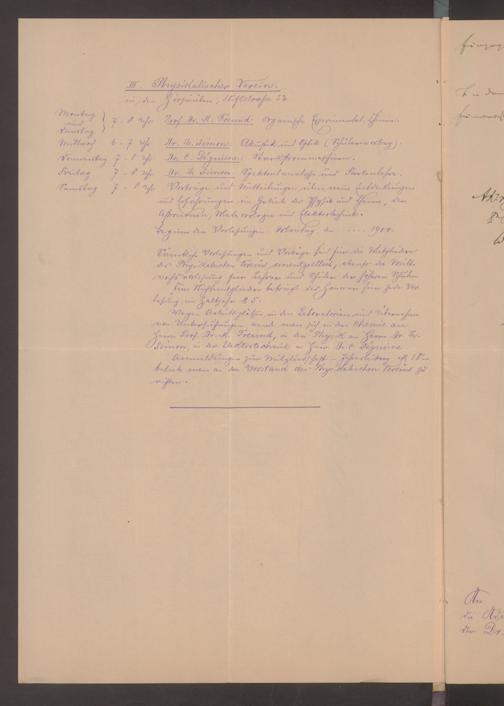 III. Physikalischer Verein.
in den Hörsälen, Stiftstraße 32.
Montag und Dienstag 7 - 8 Uhr Prof. Dr. M. Freund: Organische Experimental-Chemie.
Mittwoch 6 - 7 Uhr Dr. Th. Simon: Akustik und Optik (Schülervortrag).
Donnerstag 7 - 8 Uhr Dr. C. Déguisne: Wechselstrommaschinen.
Freitag 7 - 8 Uhr Dr. Th. Simon: Spektralanalyse und Farbenlehre.
Samstag 7 - 8 Uhr Vorträge und Mitteilungen über neue Entdeckungen
und Erfahrungen im Gebiete der Physik und Chemie, der
Astronomie, Meteorologie und Elektrotechnik.
Beginn der Vorlesungen: Montag, den .... 1900.
Sämtliche Vorlesungen und Vorträge sind für die Mitglieder
des Physikalischen Vereins unentgeltlich, ebenso die Mitt-
wochsvorlesung für Lehrer und Schüler der höheren Schulen.
Für Nichtmitglieder beträgt das Honorar für jede Vor-
lesung im Halbjahr M 5.
Wegen Arbeitsplätzen in den Laboratorien und Übernahme
von Untersuchungen wende man sich in der Chemie an
Herrn Prof. Dr. M. Freund, in der Physik an Herrn Dr. Th.
Simon, in der Elektrotechnik an Herrn Dr. C. Déguisne.
Anmeldungen zur Mitgliedschaft - Jahresbeitrag M 18 -
beliebe man an den Vorstand des Physikalischen Vereins zu
richten.
An
die
der Dr.